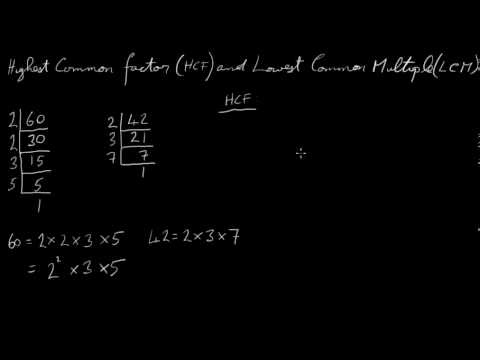 Highest Common factor (HCF) and Lowest Common Multiple (LCM)
HCF
2 | 60
2 | 30
3 | 15
5 | 5
1
2 | 42
3 | 21
7 | 7
1
60 = 2 × 2 × 3 × 5
= 2² × 3 × 5
42 = 2 × 3 × 7